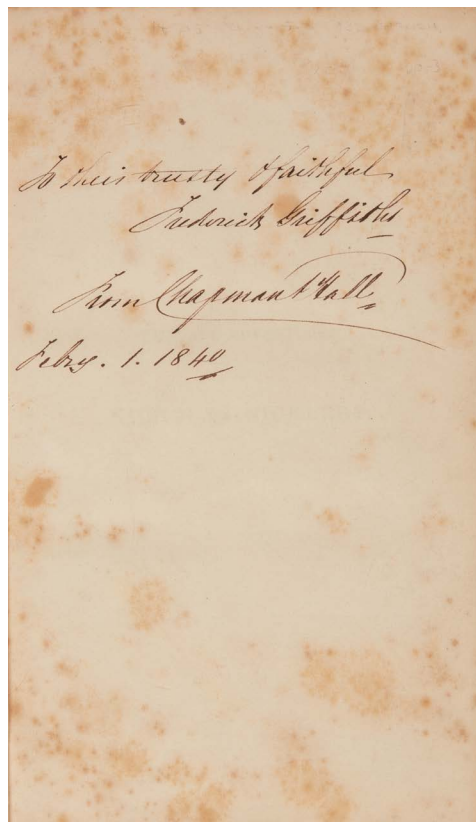 To their trusty & faithful
Frederick Griffiths
From Chapman & Hall
Febry. 1. 1840